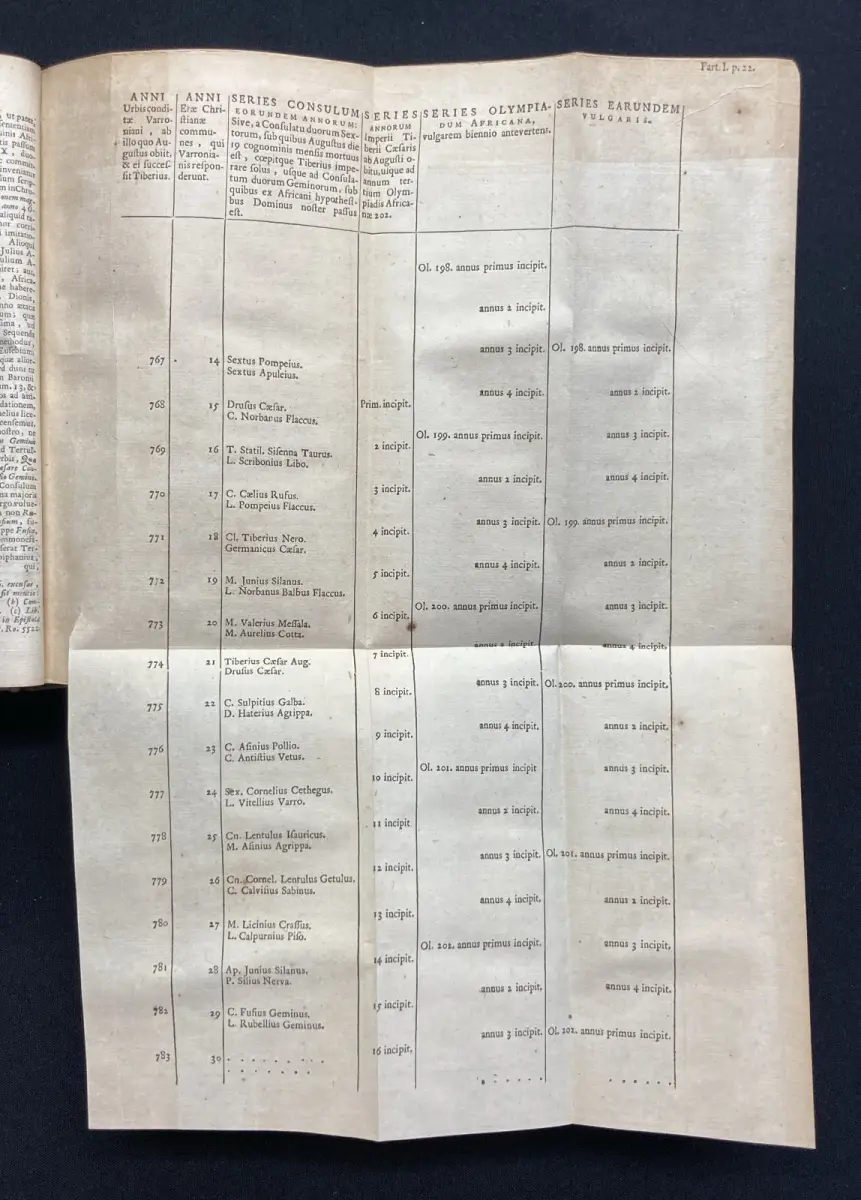 Part. I. p. 22.
ANNI
Urbis condi-
tæ Varro-
niani, ab
illo quo Au-
gustus obiit,
& ei succes-
sit Tiberius.
ANNI
Eræ Chri-
stianæ
commu-
nes, qui
Varronia-
nis respon-
derunt.
SERIES CONSULUM
EORUNDEM ANNORUM:
Sive, a Consulatu duorum Sex-
torum, sub quibus Augustus die
19 cognominis mensis mortuus
est, cœpitque Tiberius impe-
rare solus, usque ad Consula-
tum duorum Geminorum, sub
quibus ex Africani hypothesi-
bus Dominus noster passus
est.
SERIES
ANNORUM
Imperii Ti-
berii Cæsaris
ab Augusti o-
bitu, uique ad
annum ter-
tium Olym-
piadis Africa-
næ 202.
SERIES OLYMPIA-
DUM AFRICANA,
vulgarem biennio antevertens.
SERIES EARUNDEM
VULGARIS.
Ol. 198. annus primus incipit.
annus 2 incipit.
annus 3 incipit. Ol. 198. annus primus incipit.
767 14 Sextus Pompeius.
Sextus Apuleius.
annus 4 incipit. annus 2 incipit.
768 15 Drusus Cæsar. Prim. incipit.
C. Norbanus Flaccus.
Ol. 199. annus primus incipit. annus 3 incipit.
769 16 T. Statil. Sisenna Taurus. 2 incipit.
L. Scribonius Libo.
annus 2 incipit. annus 4 incipit.
770 17 C. Cælius Rufus. 3 incipit.
L. Pompeius Flaccus.
annus 3 incipit. Ol. 199. annus primus incipit.
771 18 Cl. Tiberius Nero. 4 incipit.
Germanicus Cæsar.
annus 4 incipit. annus 2 incipit.
772 19 M. Junius Silanus. 5 incipit.
L. Norbanus Balbus Flaccus.
Ol. 200. annus primus incipit. annus 3 incipit.
773 20 M. Valerius Messala. 6 incipit.
M. Aurelius Cotta.
annus 2 incipit. annus 4 incipit.
774 21 Tiberius Cæsar Aug. 7 incipit.
Drusus Cæsar.
annus 3 incipit. Ol. 200. annus primus incipit.
775 22 C. Sulpitius Galba. 8 incipit.
D. Haterius Agrippa.
annus 4 incipit. annus 2 incipit.
776 23 C. Asinius Pollio. 9 incipit.
C. Antistius Vetus.
Ol. 201. annus primus incipit annus 3 incipit.
777 24 Sex. Cornelius Cethegus. 10 incipit.
L. Vitellius Varro.
annus 2 incipit. annus 4 incipit.
778 25 Cn. Lentulus Isauricus. 11 incipit
M. Asinius Agrippa.
annus 3 incipit. Ol. 201. annus primus incipit.
779 26 Cn. Cornel. Lentulus Getulus. 12 incipit.
C. Calvisius Sabinus.
annus 4 incipit. annus 2 incipit.
780 27 M. Licinius Crassus. 13 incipit.
L. Calpurnius Piso.
Ol. 202. annus primus incipit. annus 3 incipit,
781 28 Ap. Junius Silanus. 14 incipit.
P. Silius Nerva.
annus 2 incipit. annus 4 incipit.
782 29 C. Fusius Geminus. 15 incipit.
L. Rubellius Geminus.
annus 3 incipit. Ol. 202. annus primus incipit.
783 30 . . . . . . . . . 16 incipit.